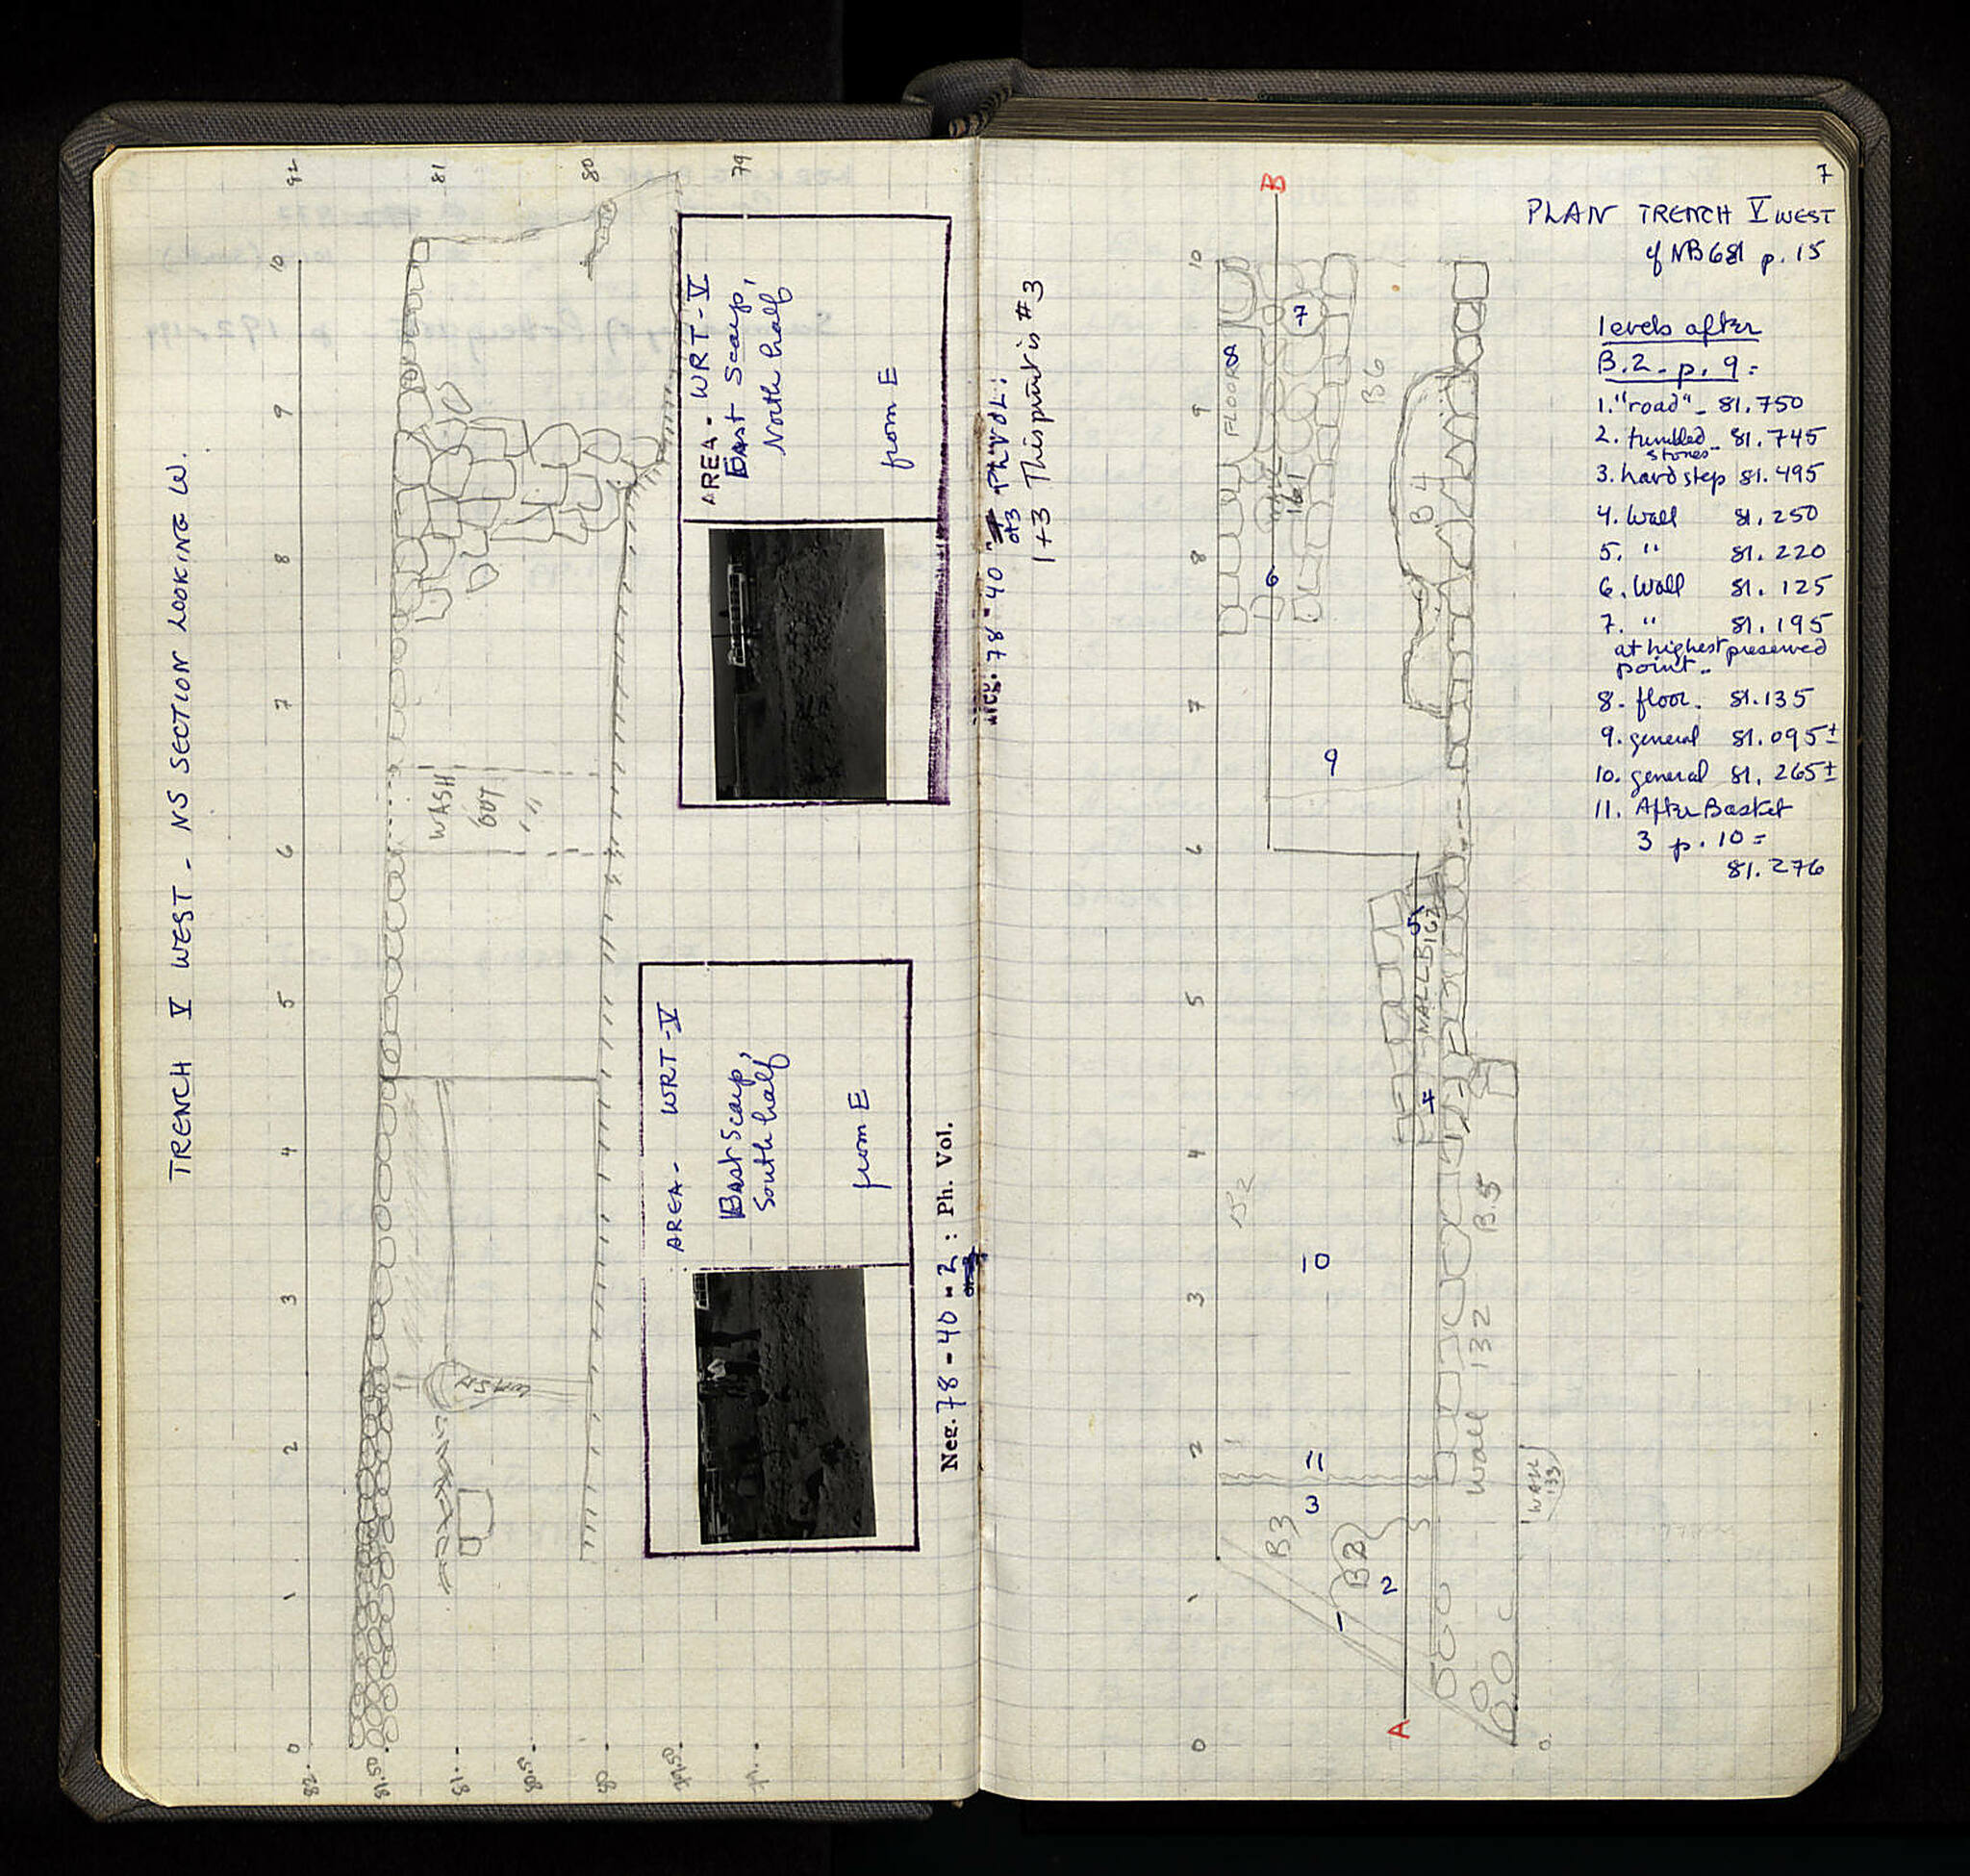 TRENCH V WEST - NS SECTION LOOKING W.
82 81 80 79
0 1 2 3 4 5 6 7 8 9 10
WASH
OUT
"
WASH
82. 81.50 81. 80.50 80 79.50 79.
AREA - WRT-V
East Scarp,
North half
from E
Neg. 78-40 Ph. Vol.:
of 3
1+3 This print is #3
AREA - WRT-V
East Scarp,
South half
from E
Neg. 78-40-2: Ph. Vol.
7
PLAN TRENCH V WEST
cf NB681 p. 15
levels after
B.2 - p. 9 =
1. "road" - 81.750
2. tumbled - 81.745
stones
3. hard step 81.495
4. Wall 81.250
5. " 81.220
6. Wall 81.125
7. " 81.195
at highest preserved
point -
8. floor - 81.135
9. general 81.095±
10. general 81.265±
11. After Basket
3 p. 10 =
81.276
B
10 9 8 7 6 5 4 3 2 1 0
FLOOR 8
7
WALL
161
B6
B4
6
9
5
WALL B 162
4
B2
10
B.5
Wall 132
11
3
WALL
133
B3
B2
2
1
A
0